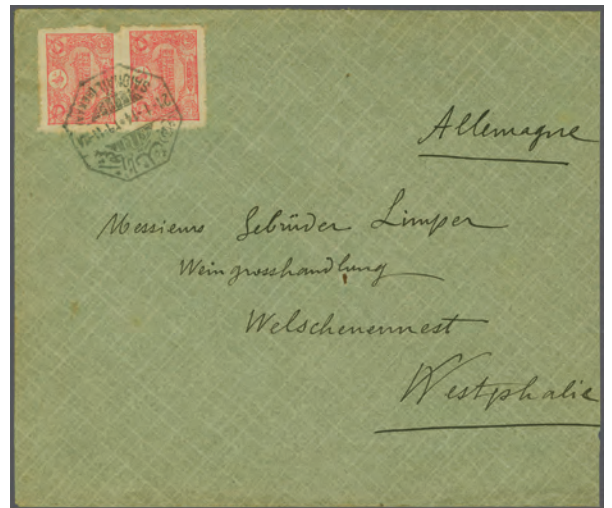 Allemagne
Messieurs Gebrüder Limper
Weingrosshandlung
Welschenennest
Westphalie